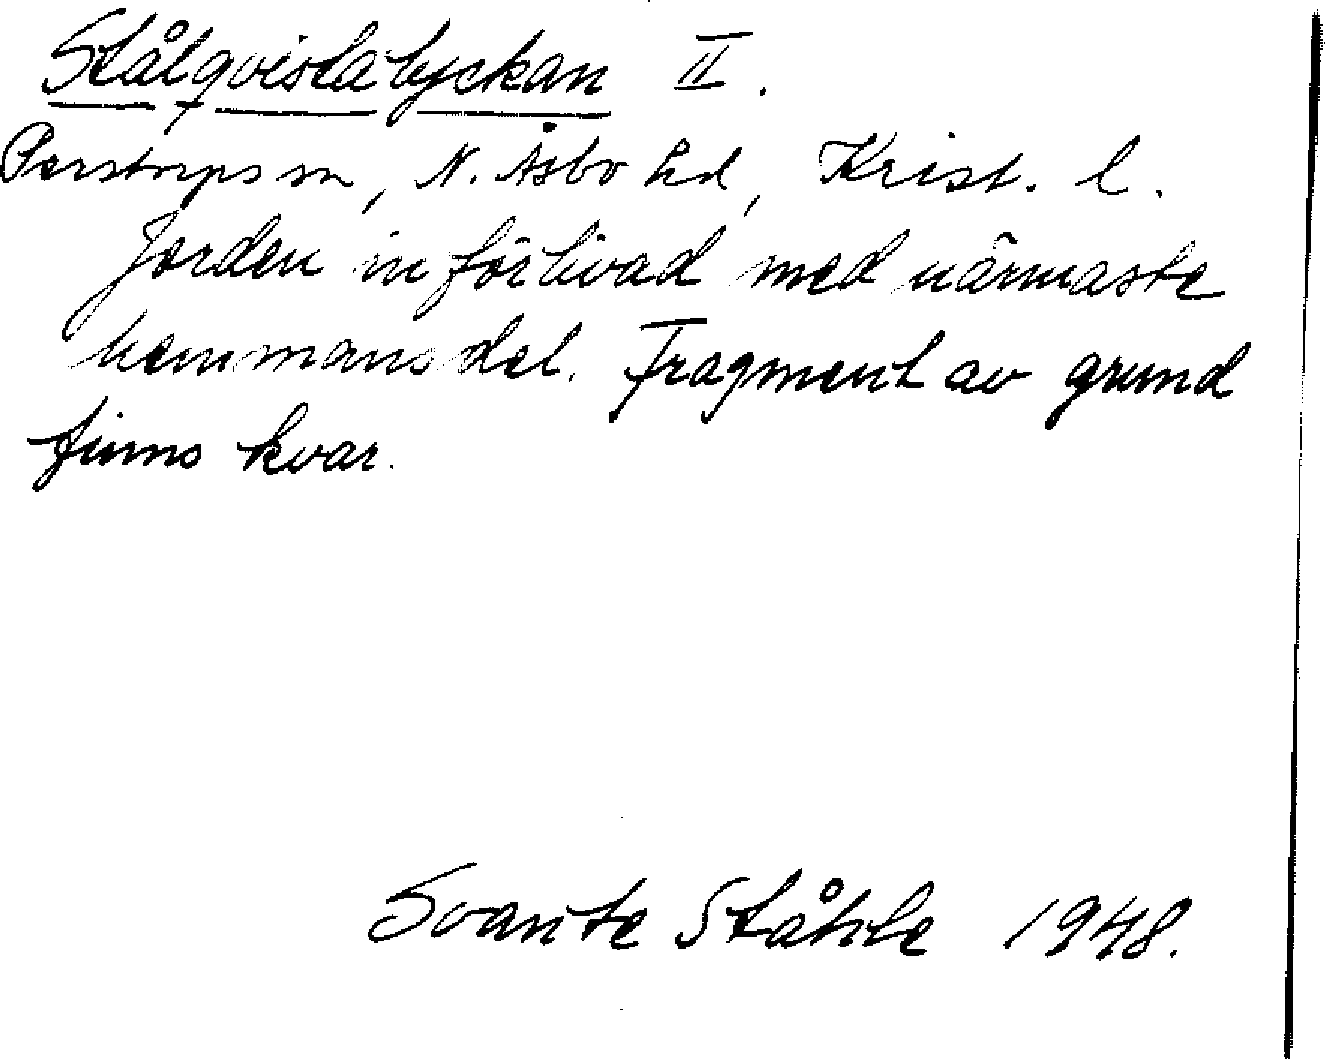 Stålqvistalyckan II.
Perstorps sn, N. Åsbo hd, Krist. l.
Jorden införlivad med närmaste
hemmansdel. Fragment av grund
finns kvar.
Svante Ståhle 1948.